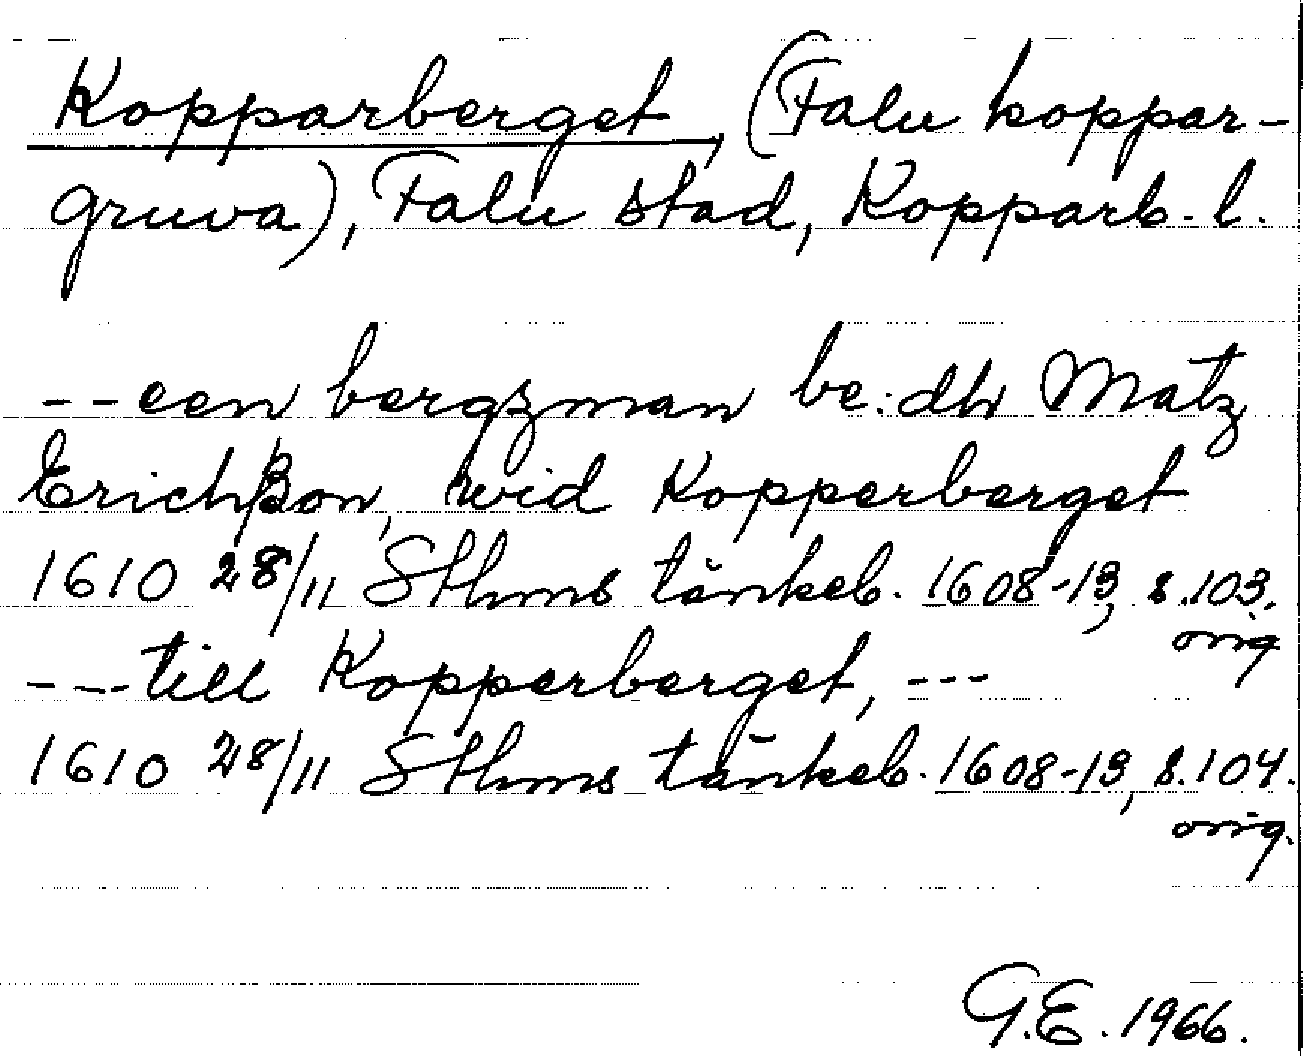 Kopparberget, (Falu koppar-
gruva), Falu stad, Kopparb. l.
--een bergzman be:dh Matz
Erichßon, wid Kopperberget
1610 28/11 Sthms tänkeb. 1608-13, s.103.
orig
---till Kopperberget, ---
1610 28/11 Sthms tänkeb. 1608-13, s.104.
orig.
G.E. 1966.